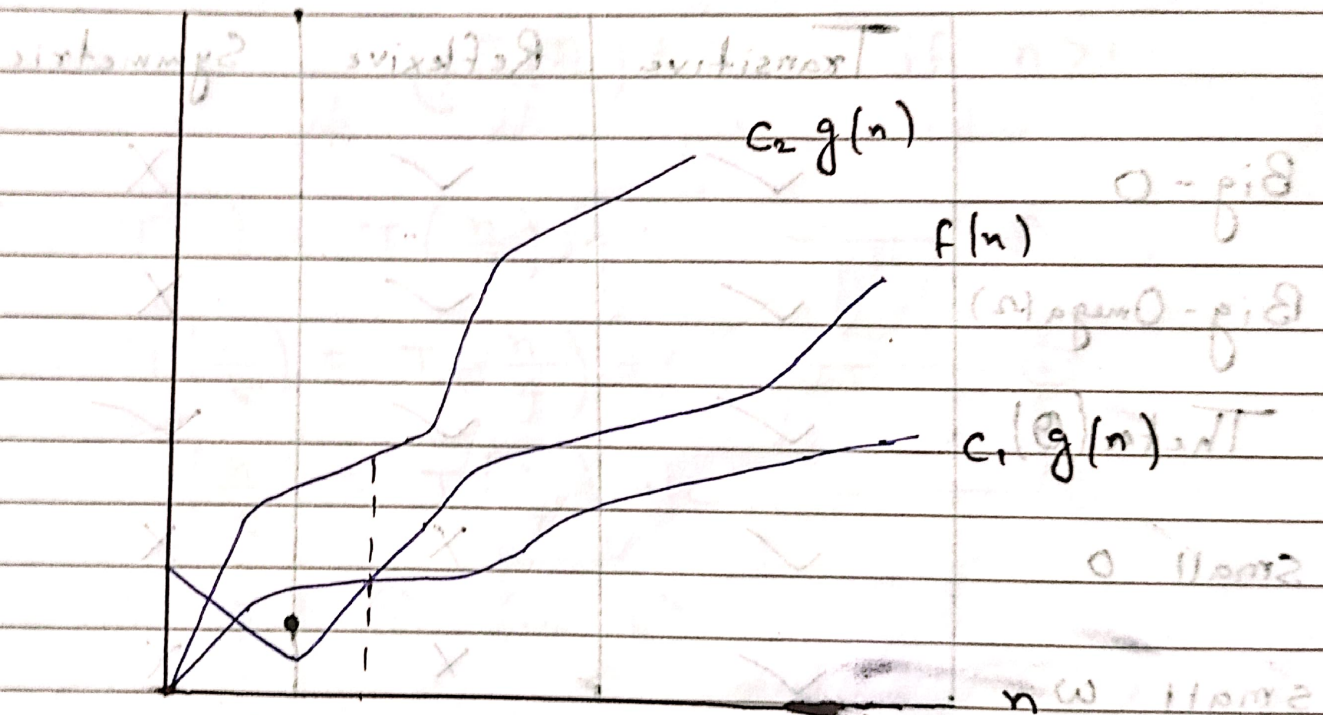 C₂ g(n)
f(n)
C₁ g(n)
n